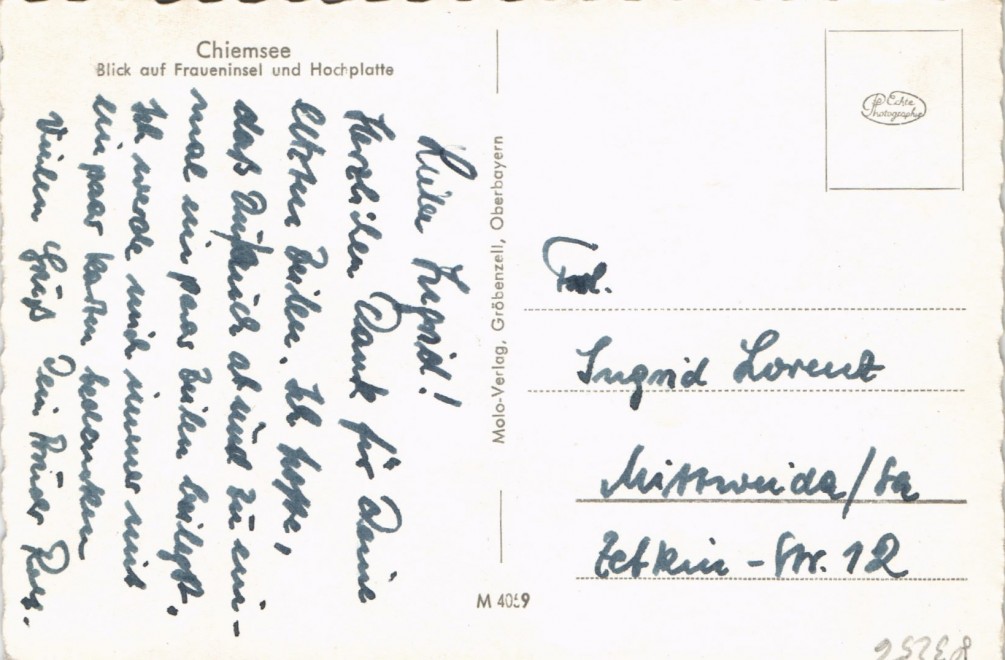 Chiemsee
Blick auf Fraueninsel und Hochplatte
Liebe Ingrid!
Herzlichen Dank für Deine
lieben Zeilen. Ich hoffe,
daß Du auch ab und zu ein-
mal ein paar Zeilen beilegst.
Ich werde mich immer mit
ein paar Karten bedanken
Vielen Gruß Dein
Molo-Verlag, Gröbenzell, Oberbayern
M 4059
Echte
Photographie
Frl.
Ingrid Lorenz
Mittweida/Sa
Zetkin-Str. 12